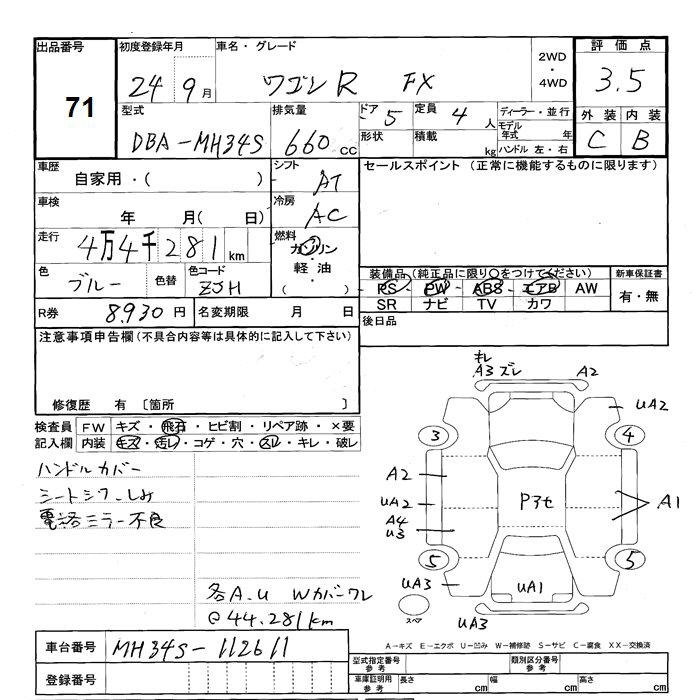 出品番号 初度登録年月 車名・グレード 2WD・4WD 評価点
71 24 9月 ワゴンR FX 3.5
型式 排気量 ドア 5 定員 4人 ディーラー・並行 外装 内装
DBA-MH34S 660cc 形状 積載 kg モデル年式 年 ハンドル 左・右 C B
車歴 自家用・( ) シフト AT セールスポイント (正常に機能するものに限ります)
車検 年 月( 日) 冷房 AC
走行 4万4千281km 燃料 ガソリン
軽油
( )
色 ブルー 色替 色コード ZJH
装備品 (純正品に限り○をつけてください) 新車保証書
PS PW ABS エアB AW 有・無
SR ナビ TV カワ
R券 8930円 名変期限 月 日 後日品
注意事項申告欄(不具合内容等は具体的に記入して下さい)
修復歴 有 〔箇所 〕
検査員 FW キズ・飛石・ヒビ割・リペア跡・×要
記入欄 内装 キズ・汚レ・コゲ・穴・スレ・キレ・破レ
ハンドルカバー
シートシワ.しみ
電格ミラー不良
各A.U Wカバーワレ
@44.281km
キレ
A3 ズレ A2
UA2
3 4
A2
UA2 P3セ A1
A4
U3
5 5
UA3 UA1
スペア UA3
車台番号 MH34S-112611
登録番号
A-キズ E-エクボ U-凹み W-補修跡 S-サビ C-腐食 XX-交換済
型式指定番号 参考 類別区分番号 参考
車庫証明用 参考 長さ cm 幅 cm 高さ cm